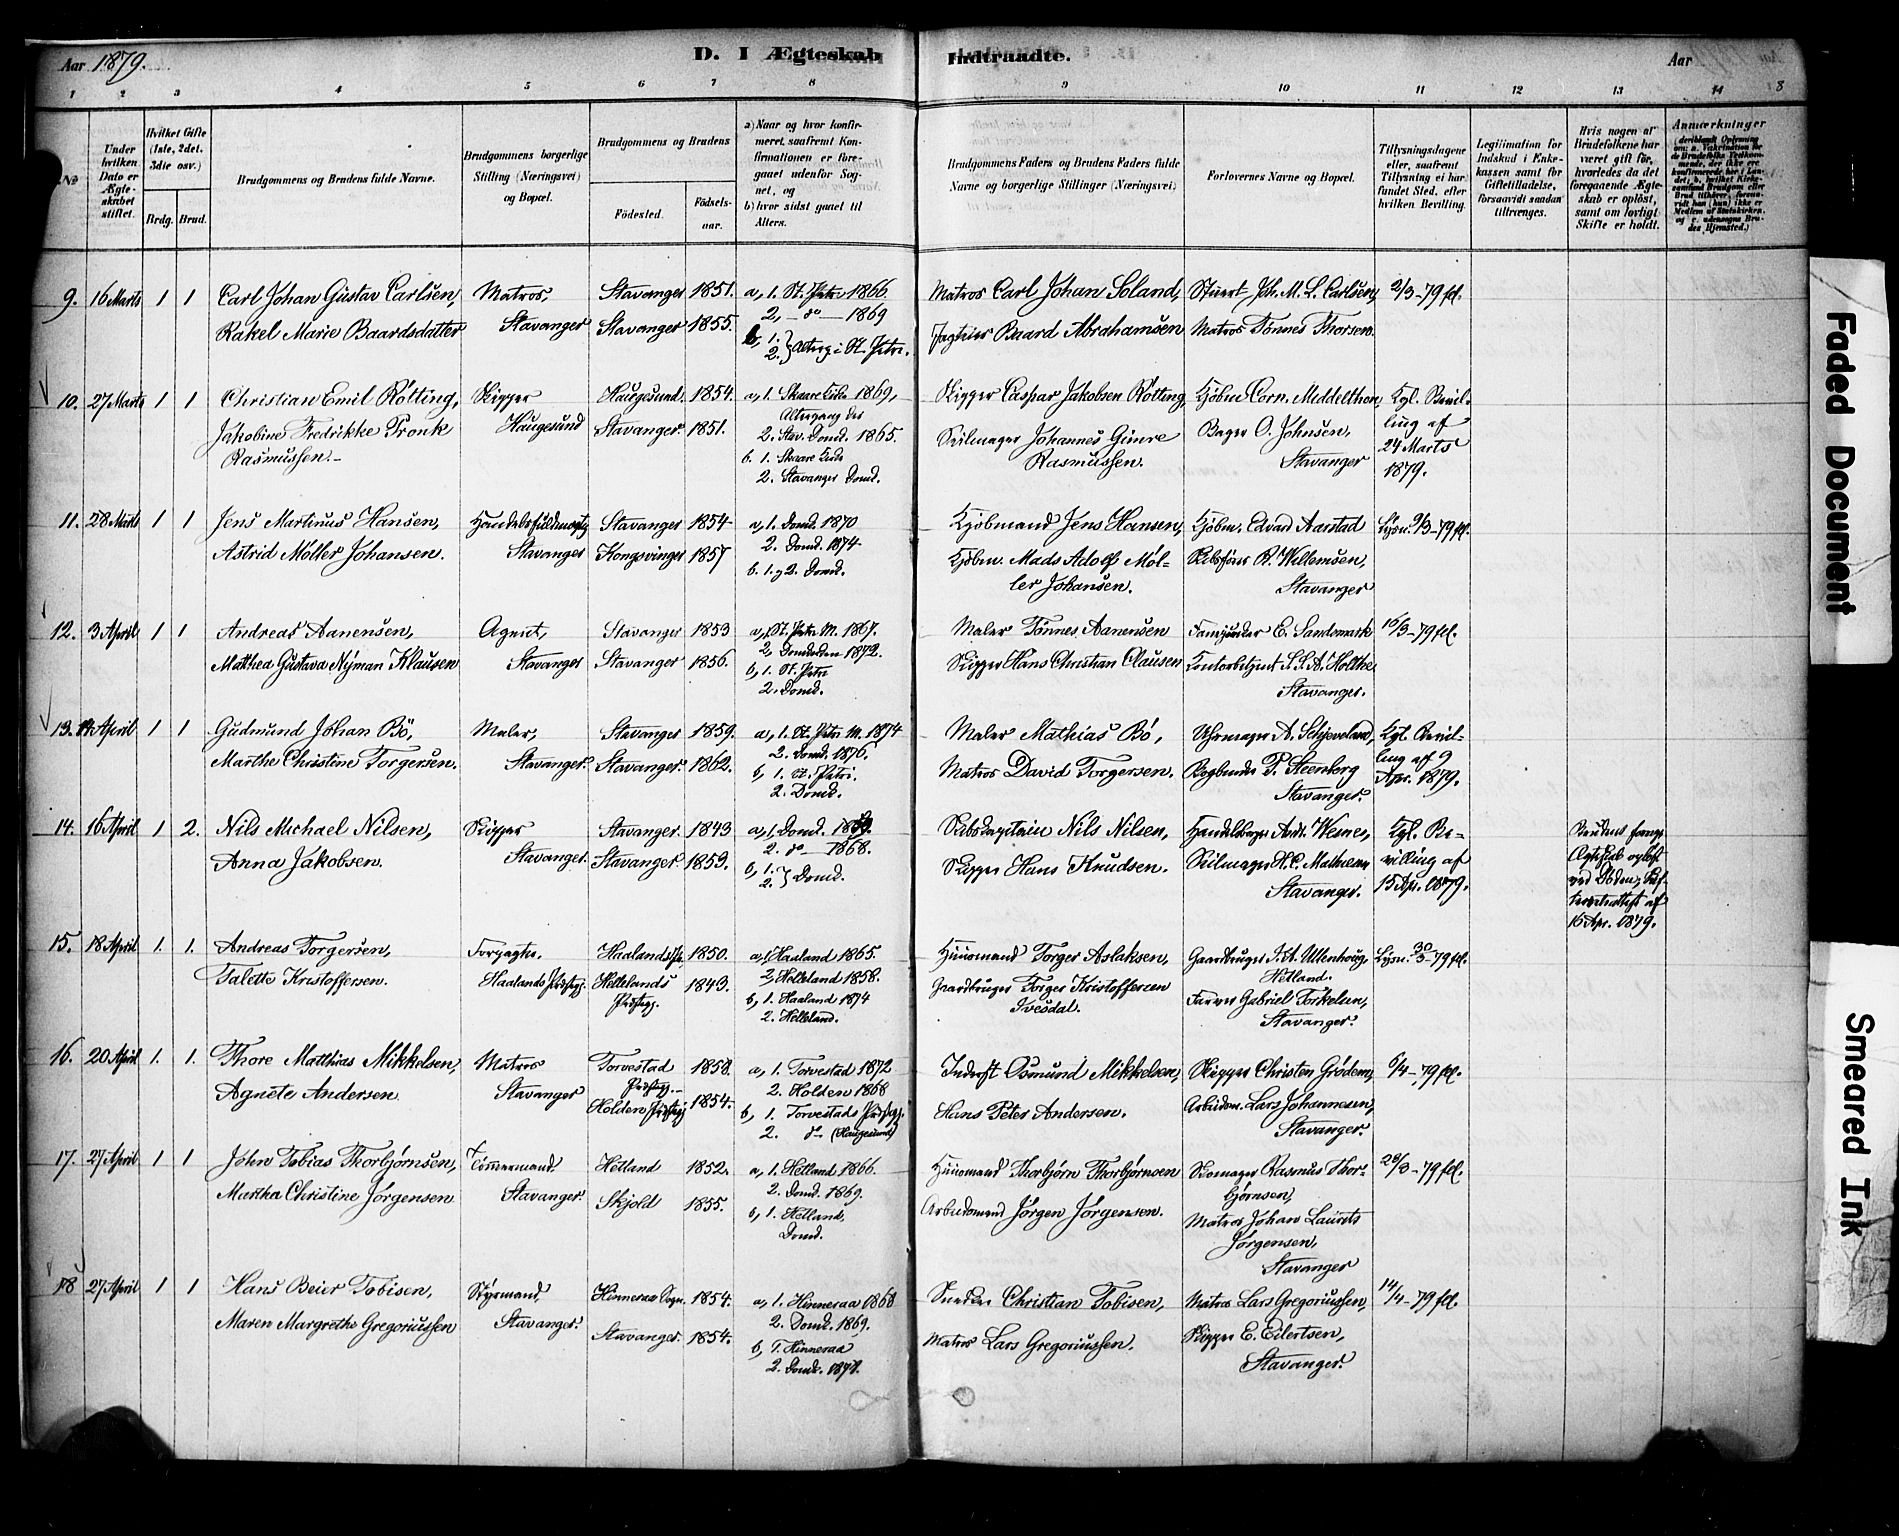 Aar 1879.
D. I Ægteskab Indtraadte.
Aar
8
1 2 3 4 5 6 7 8 9 10 11 12 13 14
No
Under hvilken Dato er Ægteskabet stiftet.
Hvilket Gifte (1ste, 2det, 3die osv.)
Brdg. Brud.
Brudgommens og Brudens fulde Navne.
Brudgommens borgerlige Stilling (Næringsvei) og Bopæl.
Brudgommens og Brudens
Födested.
Födsels-aar.
a) Naar og hvor konfirmeret, saafremt Konfirmationen er foregaaet udenfor Sognet, og
b) hvor sidst gaaet til Alters.
Brudgommens Faders og Brudens Faders fulde Navne og borgerlige Stillinger (Næringsvei)
Forlovernes Navne og Bopæl.
Tillysningsdagene eller, saafremt Tillysning ei har fundet Sted, efter hvilken Bevilling.
Legitimation for Indskud i Enkekassen samt for Giftetilladelse, forsaavidt saadan tiltrænges.
Hvis nogen af Brudefolkene har været gift för, hvorledes da det foregaaende Ægteskab er oplöst, samt om lovligt Skifte er holdt.
Anmærkninger
9. 16 Marts 1 1 Carl Johan Gustav Carlsen, Matros, Stavanger 1851. a, 1. St. Petri 1866. Matros Carl Johan Soland, Stuert Joh. M. L. Carlsen, 2/3-79 fl.
Rakel Marie Baardsdatter Stavanger Stavanger 1855. 2, — do — 1869 Baard Abrahamsen Matros Tönnes Thorsen.
b, 1. 2. } Alterg i St. Petri.
10. 27 Marts 1 1 Christian Emil Rötting, Skipper Haugesund. 1854. a, 1. Skaare Kirke 1869, Skipper Caspar Jakobsen Rötting, Kjöbm Corn. Middelthon, Kgl. Bevil-
Altergang der
Jakobine Fredrikke Tronk Haugesund Stavanger. 1851. 2. Stav. Domk. 1865. Seilmager Johannes Gimre Bager O. Johnsen, ling af
Rasmussen. b. 1. Skaare Kirke Rasmussen. Stavanger 24 Marts
2. Stavanger Domk. 1879.
11. 28 Marts 1 1 Jens Martinus Hansen, Handelsfuldmægtig Stavanger 1854 a, 1. Domk. 1870 Kjöbmand Jens Hansen, Kjöbm. Edvard Aarstad 9/3-79 fl.
Astrid Möller Johansen. Stavanger Kongsvinger 1857 2. Domk. 1874 Kjöbm. Mads Adolf Möl- Skibsförer R. Willemsen,
b. 1. og 2. Domk. ler Johansen. Stavanger
12. 3 April 1 1 Andreas Aanensen, Agent, Stavanger 1853 a, 1 St. Petri M. 1867. Maler Tönnes Aanensen E. Sandsmark 16/3-79 fl.
Mathea Gustava Nyman Klausen Stavanger Stavanger 1856. 2, Domkirken 1872. Skipper Hans Christian Clausen Kontorbetjent S. S. A. Holthe
b, 1. St. Petri Stavanger.
2. Domk.
13. 14 April 1 1 Gudmund Johan Bö, Maler, Stavanger 1859. a, 1. St. Petri M. 1874 Maler Mathias Bö, Uhrmager A. Schjeveland, Kgl. Bevil-
Marthe Christine Torgersen. Stavanger. Stavanger. 1862. 2. Domk. 1876. Matros David Torgersen. Bogbinder P. Steenberg ling af 9
b, 1. St. Petri. Stavanger. Apr. 1879.
2. Domk.
14. 16 April 1 2. Nils Michael Nilsen, Skipper Stavanger. 1843 a, 1. Domk. 1859. Skibscapitain Nils Nilsen, Kgl. Be-
Anna Jakobsen. Stavanger. Stavanger. 1853. 2. do — 1868. Skipper Hans Knudsen. Seilmager H. C. Mathiesen villing af
b, 1. 2. } Domk. Stavanger. 15 Apr. 1879.
Brudens forrige Ægteskab oplöst ved Döden; Skifterettsattest af 16 Apr. 1879.
15. 18 April 1. 1. Andreas Torgersen, Forpagter. Haalands Pr. 1850. a, 1 Haaland 1865. Huusmand Torger Aslaksen, Gaardbruger Lysn. 30/3-79 fl.
Hetland.
Talette Kristoffersen. Haalands Præstegj. Hellelands Præstegj. 1843. 2, Helleland 1858. Gaardbruger Torger Kristoffersen Farver Gabriel Torkelsen,
b, 1. Haaland 1874 Ivesdal. Stavanger.
2. Helleland.
16. 20 April 1. 1. Thore Matthias Mikkelsen, Matros Torvestad Præstegj. 1858. a, 1. Torvestad 1872 Inderst Osmund Mikkelsen, Skipper Christen Grödem, 6/4-79 fl.
Agnete Andersen Stavanger Holden Præstegj 1854. 2. Holden 1868 Hans Peter Andersen. Arbeidsm. Lars Johannesen,
b, 1. Torvestad Præstgj. Stavanger.
2. do (Haugesund)
17. 27 April 1 1 John Tobias Thorbjørnsen, Tömmermand. Hetland 1852. a, 1. Hetland 1866. Huusmand Thorbjørn Thorbjørnsen Skomager Rasmus Thor- 23/3-79 fl.
Martha Christine Jörgensen Stavanger. Skjold 1855. 2. Domk. 1869. Arbeidsmand Jörgen Jörgensen. bjørnsen,
b, 1. Hetland, Matros Johan Laurits
Domk. Jörgensen,
Stavanger
18 27 April 1 1 Hans Beier Tobisen, Styrmand, Hinneraa Sogn. 1854. a, 1. Hinneraa 1868 Christian Tobisen, Matros Lars Gregoriussen, 14/4-79 fl.
Maren Margrethe Gregoriussen Stavanger. Stavanger. 1854. 2. Domk. 1869. Matros Lars Gregoriussen. Skipper E. Eilertsen,
b, 1. Hinneraa Stavanger.
2. Domk. 1874.
Faded Document
Smeared Ink